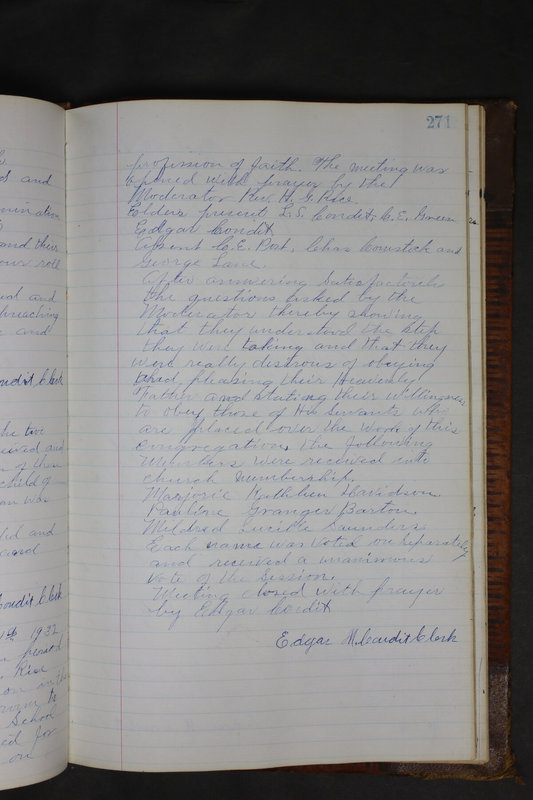 271
profession of faith. The meeting was
opened with prayer by the
Moderator Rev. H. G. Rice.
Elders present L. S. Condit, C. E. Green
Edgar Condit
Absent C. E. Post, Chas Comstock and
George Lane.
After answering Satisfactorily
the questions asked by the
Moderator thereby showing
that they understood the step
they were taking and that they
were really desirous of obeying
and pleasing their Heavenly
Father and stating their willingness
to obey those of His Servants who
are placed over the work of this
congregation, the following
members were received into
church membership.
Marjorie Kathleen Davidson
Pauline Granger Barton
Mildred Lucille Saunders
Each name was voted on separately
and received a unanimous
vote of the Session.
Meeting closed with prayer
by Edgar Condit
Edgar M. Condit Clerk
d and
and their
our roll
and
preaching
and
Condit Clerk
the two
and
of these
child of
was
and
Condit Clerk
1932
Rice
on
School
for
on